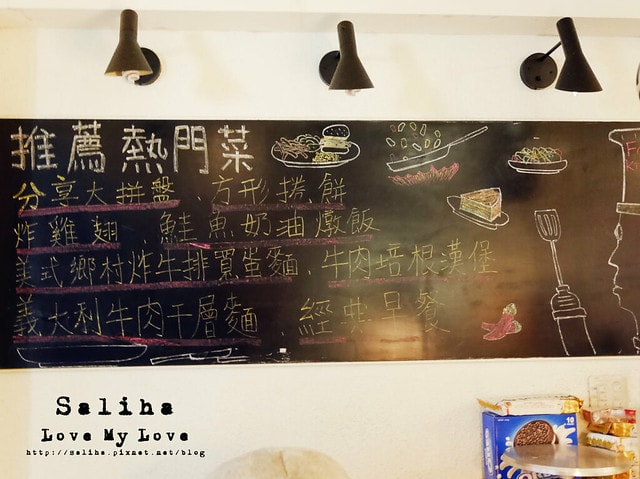 推薦熱門菜
分享大拼盤、方形捲餅
炸雞翅、鮭魚奶油燉飯
美式鄉村炸牛排買蛋麵、牛肉培根漢堡
義大利牛肉千層麵、經典早餐
Saliha
Love My Love
http://saliha.pixnet.net/blog